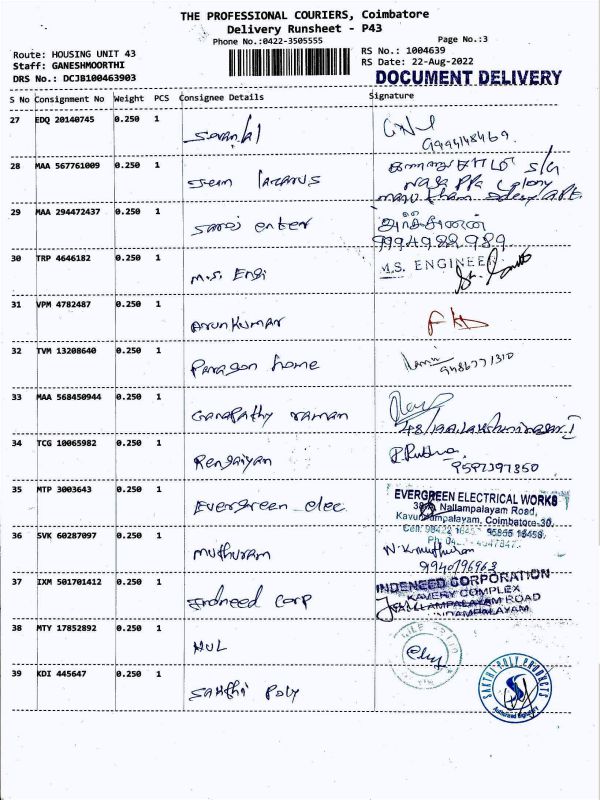 THE PROFESSIONAL COURIERS, Coimbatore
Delivery Runsheet - P43
Phone No.:0422-3505555
Page No.:3
Route: HOUSING UNIT 43
RS No.: 1004639
Staff: GANESHMOORTHI
RS Date: 22-Aug-2022
DRS No.: DCJB100463903
DOCUMENT DELIVERY
S No Consignment No Weight PCS Consignee Details Signature
27 EDQ 20140745 0.250 1
28 MAA 567761009 0.250 1
Jeem Lazarus
colony
29 MAA 294472437 0.250 1
Saroj enter
9994988989
30 TRP 4646182 0.250 1
M.S. Engi M.S. ENGINEE
31 VPM 4782487 0.250 1
Arun Kumar
32 TVM 13208640 0.250 1
Paragon home
9486771310
33 MAA 568450944 0.250 1
Ganapathy raman
34 TCG 10065982 0.250 1
Rengaiyan
9597397850
35 MTP 3003643 0.250 1
Evergreen elec
EVERGREEN ELECTRICAL WORKS
Nallampalayam Road,
Coimbatore-30.
36 SVK 60287097 0.250 1
Muthuram
N.K.muthuram
9940796963
37 IXM 501701412 0.250 1
Indneed Corp
INDENEED CORPORATION
KAVERY COMPLEX
NALLAMPALAYAM ROAD
38 MTY 17852892 0.250 1
HUL
39 KDI 445647 0.250 1
Sakthi Poly
SAKTHI POLY PRODUCTS
Authorised Signatory